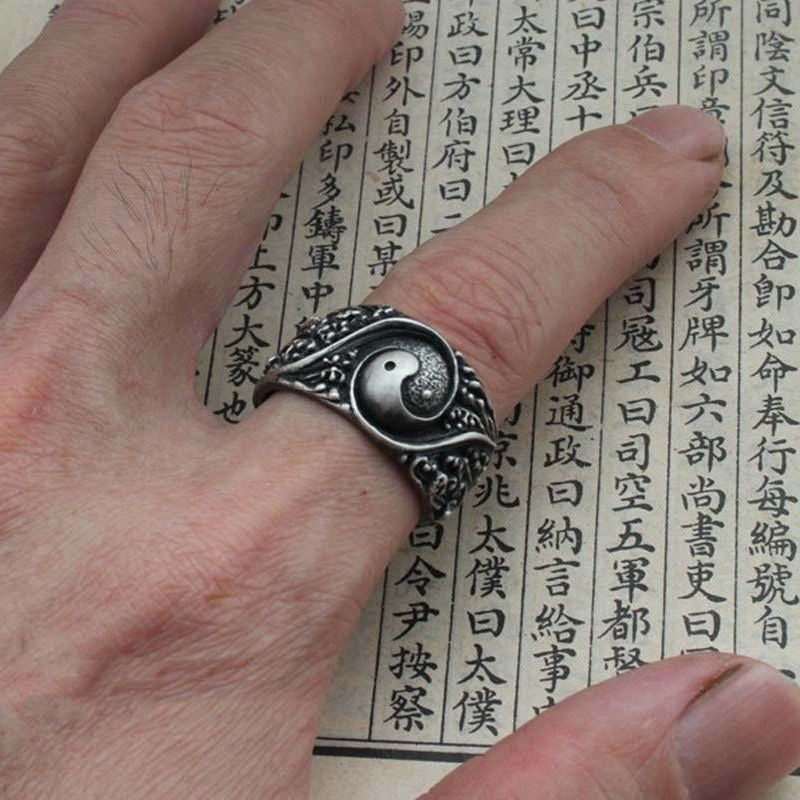 同陰文信符及勘合卽如命奉行每編號自
所謂印章 所謂牙牌如六部尚書吏曰
宗伯兵曰 司冦工曰司空五軍都督
曰中丞十 御通政曰納言給事
太常大理曰 京兆太僕曰太僕
政曰方伯府曰二 曰令尹按察
賜印外自製或曰某
私印多鑄軍中
印上方大篆也